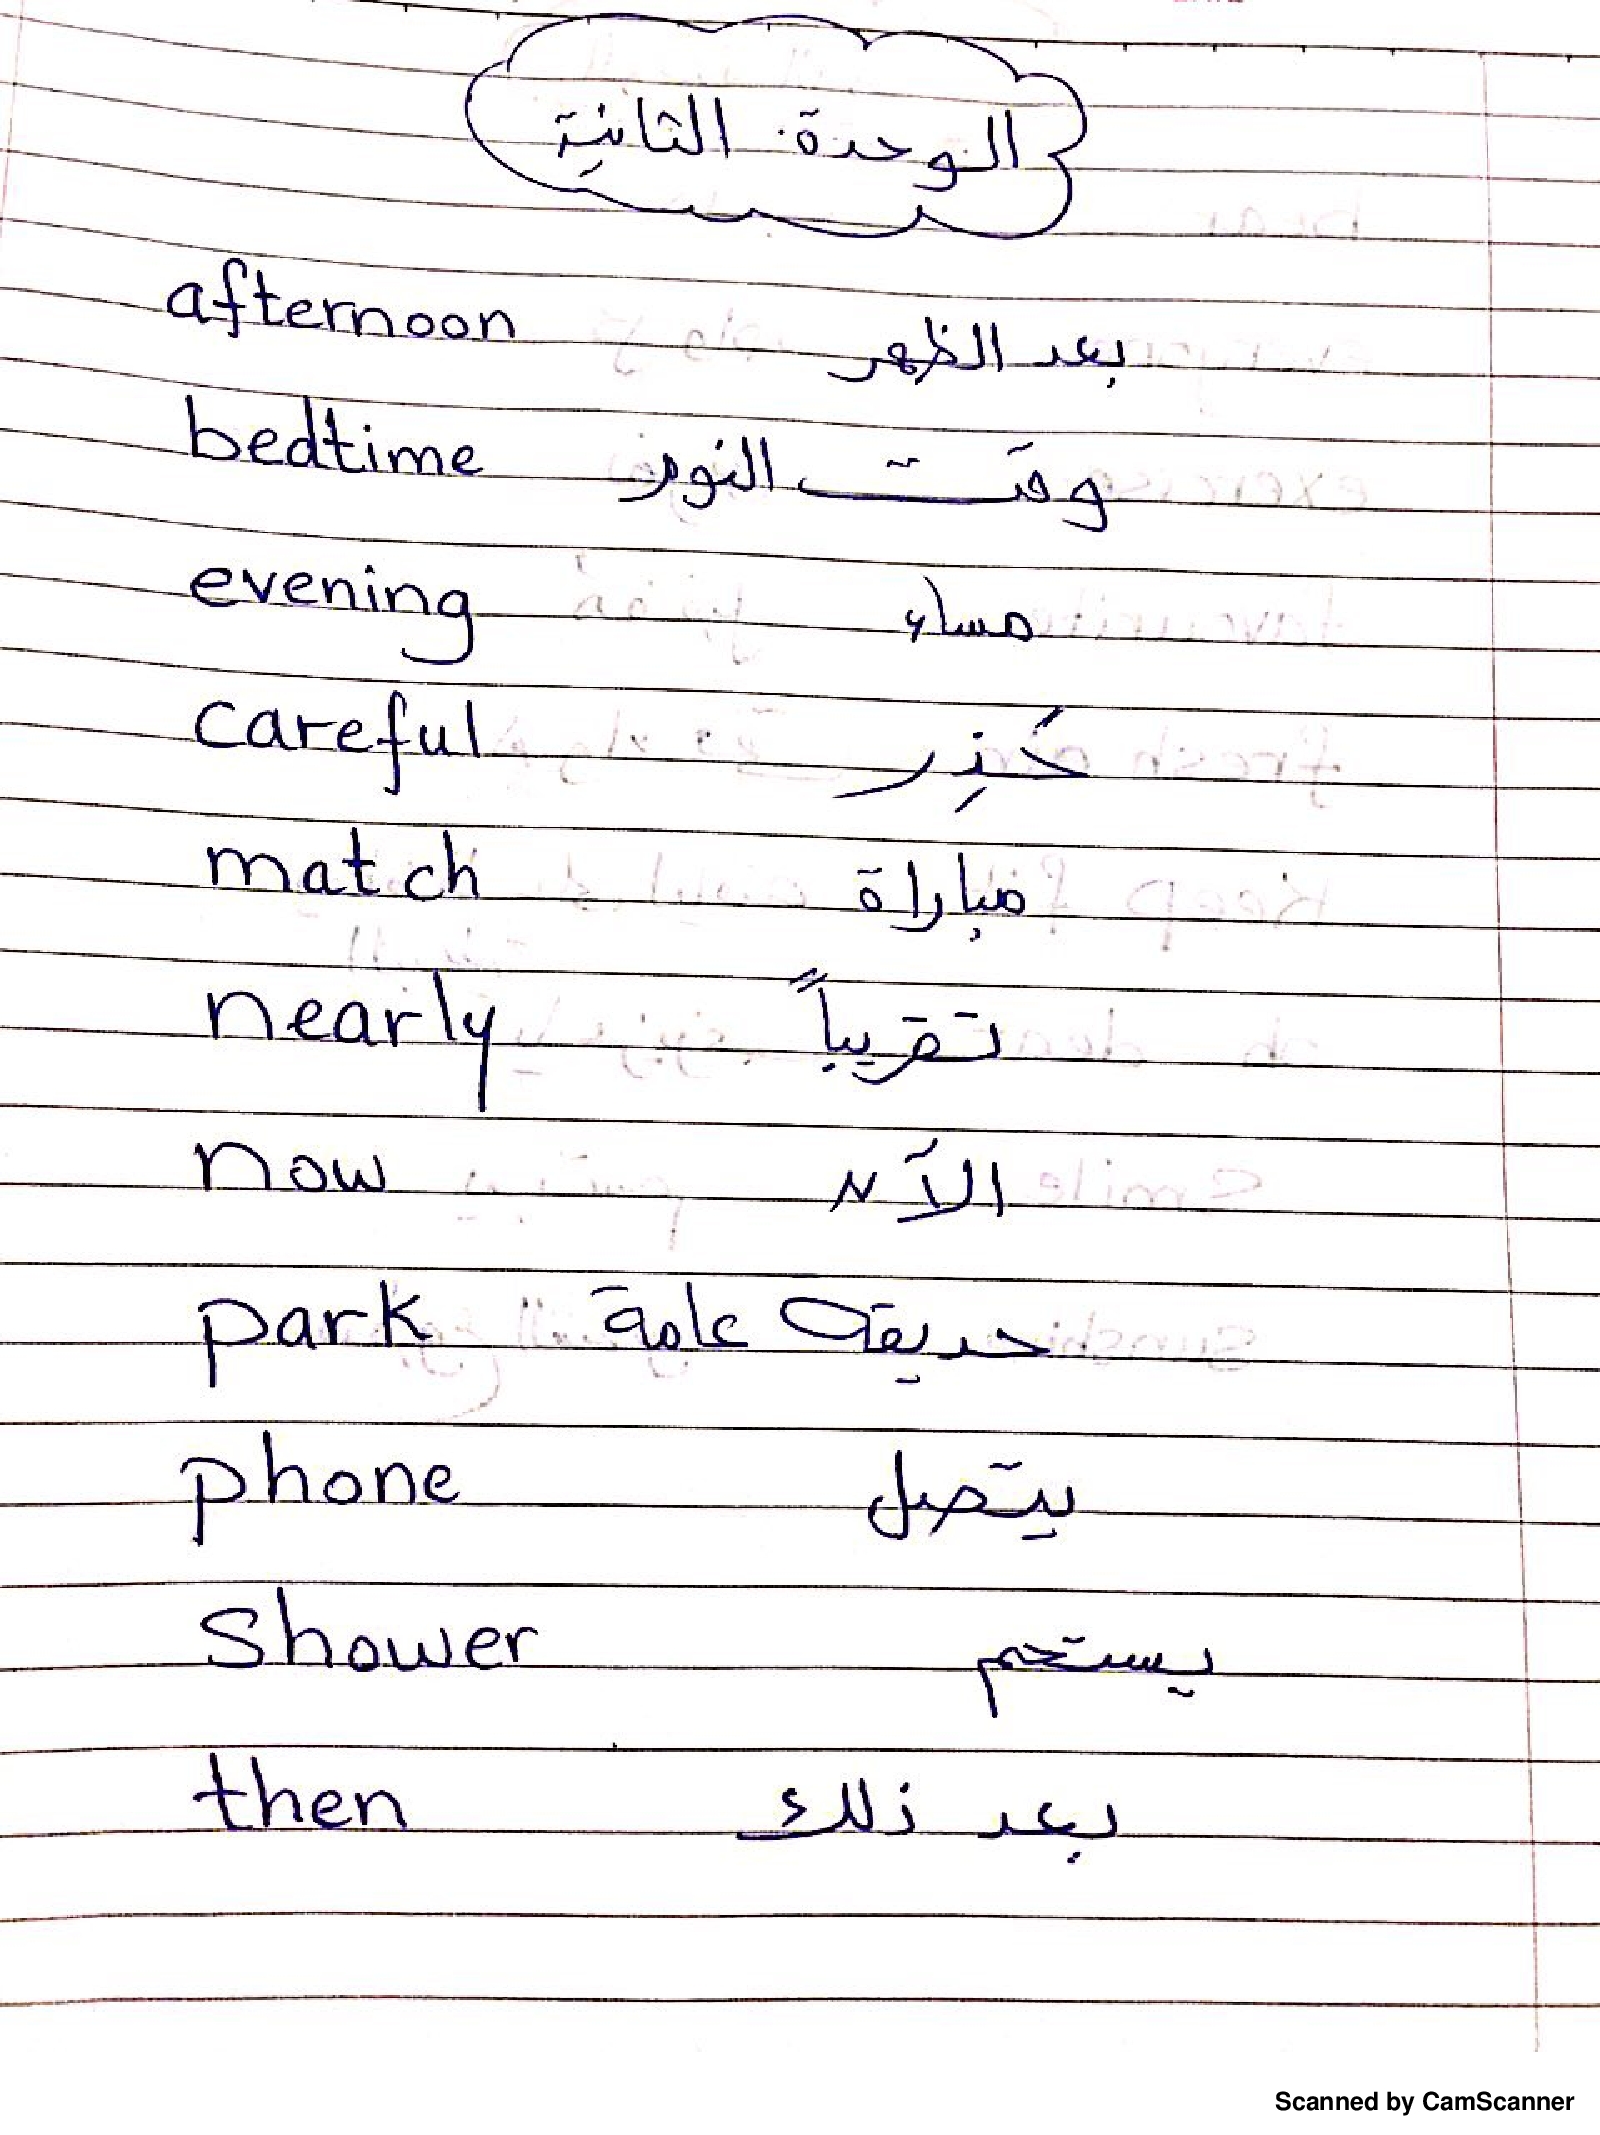 الوحدة الثانية
afternoon بعد الظهر
bedtime وقت النوم
evening مساء
careful حَذِر
match مباراة
nearly تقريباً
now الآن
park حديقة عامة
phone يتصل
shower يستحم
then بعد ذلك
Scanned by CamScanner